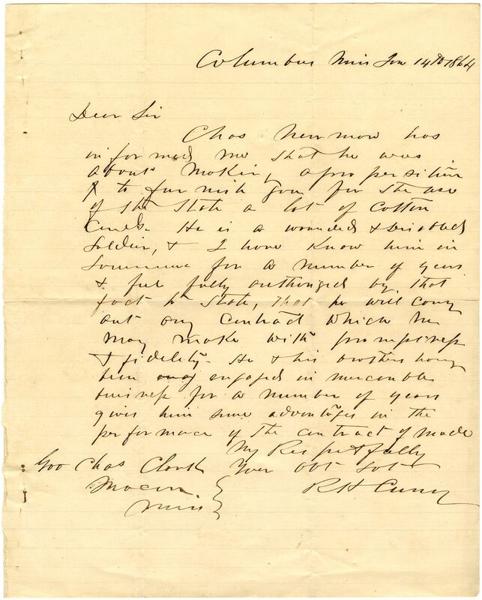 Columbus Miss Jan 14th 1864
Dear Sir
Chas has
informed me that he was
about making a proposition
to furnish you for the use
of the State a lot of Cotton
Cards. He is a wounded & disabled
Soldier, & I have know him in
for a number of years
& feel fully authorized by that
fact to State, that he will carry
out any contract which he
may make with promptness
& fidelity. He & his brothers having
been engaged in mercantile
business for a number of years
gives him some advantages in the
performance of the contract if made
Very Respectfully
Your Obt Svt
R H
Gov Chas Clark
Macon
Miss